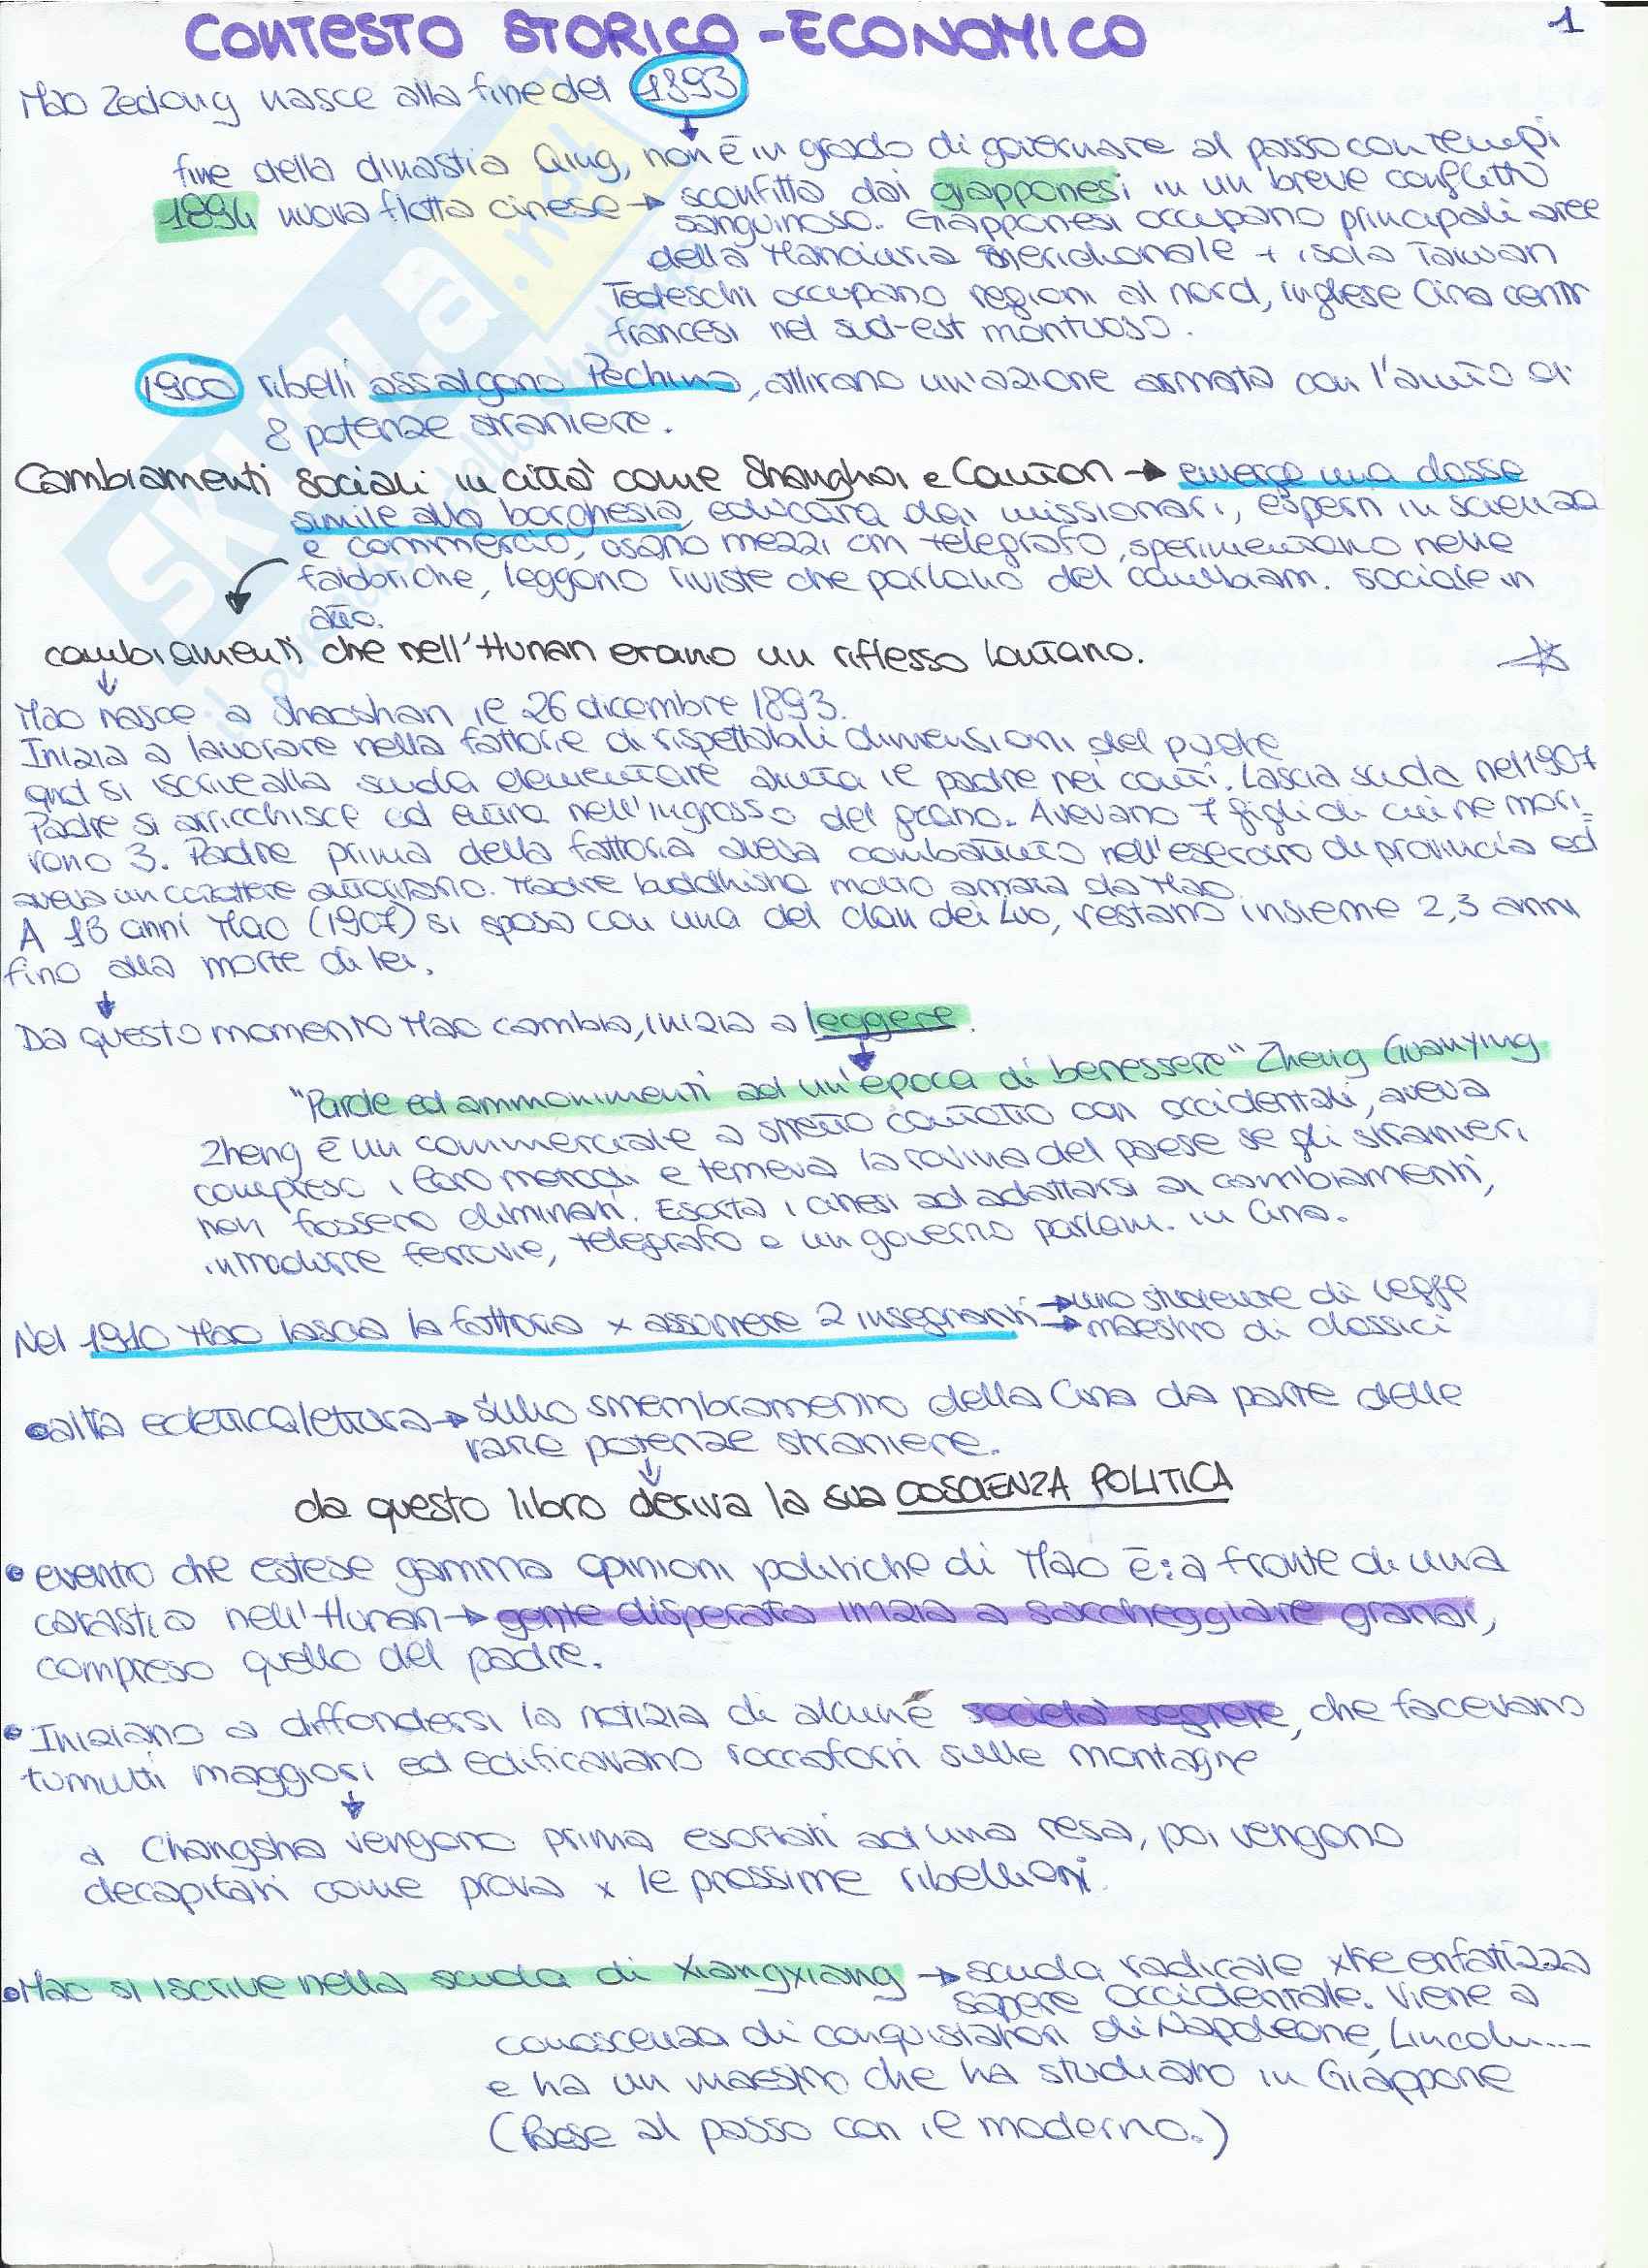 1
CONTESTO STORICO-ECONOMICO
Mao Zedong nasce alla fine del 1893
fine della dinastia Qing, non è in grado di governare al passo con tempi
1894 nuova flotta cinese → sconfitta dai giapponesi in un breve conflitto
sanguinoso. Giapponesi occupano principali aree
della Manciuria meridionale + isola Taiwan
Tedeschi occupano regioni al nord, inglese Cina centr
francesi nel sud-est montuoso.
1900 ribelli assalgono Pechino, attirano un'azione armata con l'aiuto di
8 potenze straniere.
Cambiamenti sociali in città come Shanghai e Canton → emerge una classe
simile alla borghesia, educata dai missionari, esperti in scienza
e commercio, usano mezzi cm telegrafo, sperimentano nelle
fabbriche, leggono riviste che parlano del cambiam. sociale in
atto.
cambiamenti che nell'Hunan erano un riflesso lontano.
Mao nasce a Shaoshan il 26 dicembre 1893.
Inizia a lavorare nella fattorie di rispettabili dimensioni del padre
qnd si iscrive alla scuola elementare aiuta il padre nei conti. Lascia scuola nel 1907
Padre si arricchisce ed entra nell'ingrosso del grano. Avevano 7 figli di cui ne mori-
rono 3. Padre prima della fattoria aveva combattuto nell'esercito di provincia ed
aveva un carattere autoritario. Madre buddhista molto amata da Mao.
A 13 anni Mao (1907) si sposa con una del clan dei Luo, restano insieme 2,3 anni
fino alla morte di lei.
Da questo momento Mao cambia, inizia a leggere.
"Parole ed ammonimenti ad un'epoca di benessere" Zheng Guanying
Zheng è un commerciale a stretto contatto con occidentali, aveva
compreso i loro metodi e temeva la rovina del paese se gli stranieri
non fossero eliminati. Esorta i cinesi ad adattarsi ai cambiamenti,
introdurre ferrovie, telegrafo e un governo parlam. in Cina.
Nel 1910 Mao lascia la fattoria x assumere 2 insegnanti → uno studente di legge
→ maestro di classici
• altra eclettica lettura → sullo smembramento della Cina da parte delle
varie potenze straniere.
da questo libro deriva la sua COSCIENZA POLITICA
• evento che estese gamma opinioni politiche di Mao è: a fronte di una
carastia nell'Hunan → gente disperata inizia a saccheggiare granai,
compreso quello del padre.
• Iniziano a diffondersi la notizia di alcune società segrete, che facevano
tumulti maggiori ed edificavano roccaforti sulle montagne
a Changsha vengono prima esortati ad una resa, poi vengono
decapitati come prova x le prossime ribellioni.
• Mao si iscrive nella scuola di Xiangxiang → scuola radicale xkè enfatizza
sapere occidentale. Viene a
conoscenza di conquistatori di Napoleone, Lincoln....
e ha un maestro che ha studiato in Giappone
(Paese al passo con il moderno.)
SKUOLA.net